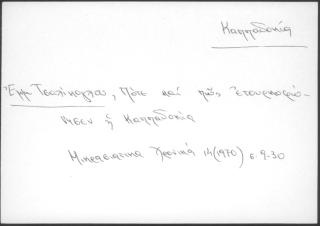 Καππαδοκία
Εμμ Τσαλίκογλου, Πότε καί πῶς ἐτουρκοφώ-
νησεν ἡ Καππαδοκία
Μικρασιατικα Χρονικά 14(1970) σ. 9-30